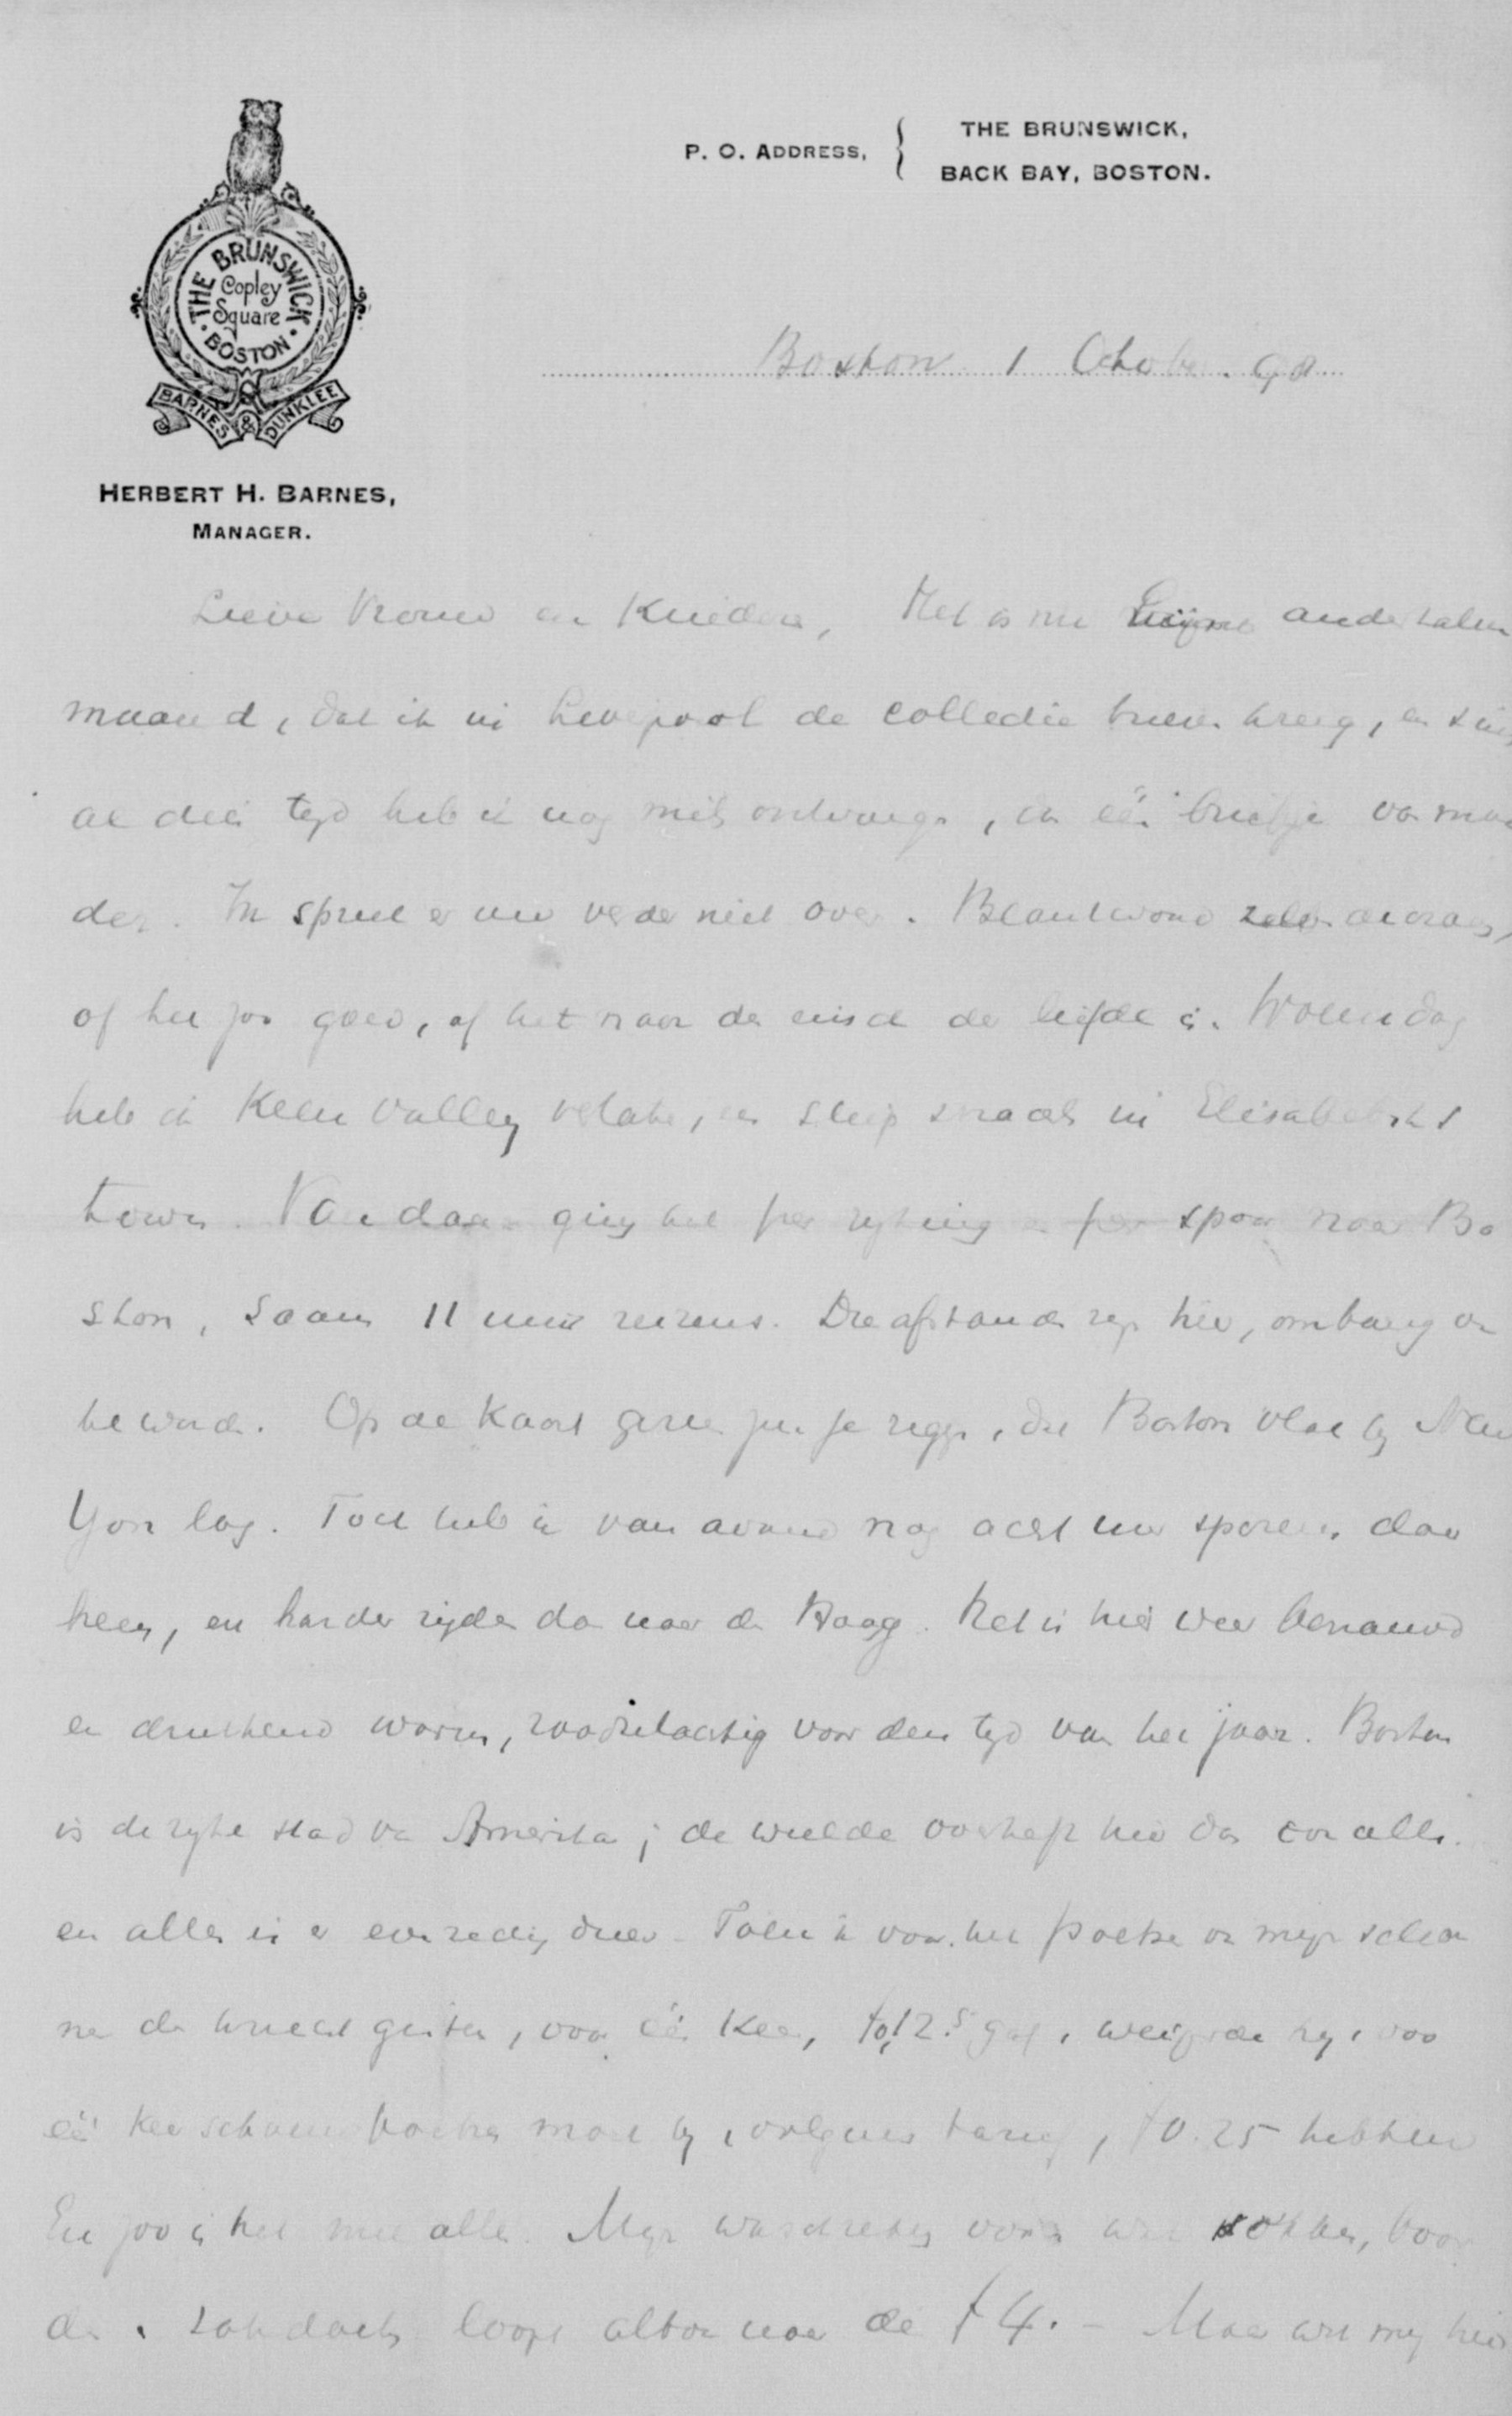 P. O. ADDRESS, { THE BRUNSWICK,
BACK BAY, BOSTON.
THE BRUNSWICK
Copley
Square
BOSTON
BARNES & DUNKLEE
HERBERT H. BARNES,
MANAGER.
Boston 1 October 98
Lieve Vrouw en Kinderen, Het is nu anderhalve
maand, dat ik in Liverpool de collectie brieven kreeg, en sinds
al dien tijd heb ik nog niets ontvangen, dan één briefje van moe
der. Ik spreek er nu verder niet over. Beantwoord zelve de vraag,
of het zoo goed, of het naar den eisch der liefde is. Woensdag
heb ik Keen Valley verlaten, en sliep snachts in Elisabeths
town. Van daar ging het per rijtuig en per spoor naar Bo
ston, saam 11 uur reizens. Die afstanden zijn hier, om bang van
te worden. Op de kaart zou je zeggen, dat Boston vlak bij New
York lag. Toch heb ik van avond nog acht uur sporen daar
heen, en harder rijden dan naar den Haag. Het is hier weer benauwd
en drukkend warm, voor den tijd van het jaar. Boston
is de rijke stad van Amerika; de weelde overtreft hier dan ook alles.
en alles is er evenredig duur. Toen ik voor het poetsen van mijn schoe
nen de knecht gisteren, voor één keer, f0,12.5 gaf, weigerde hij, voor
één keer schoenpoetsen moet hij, volgens tarief, f0.25 hebben
En zoo is het met alles. Mijn voor wat sokken, boor
den, zakdoeken loopt altoos naar de f4.- Maar wat mij hier